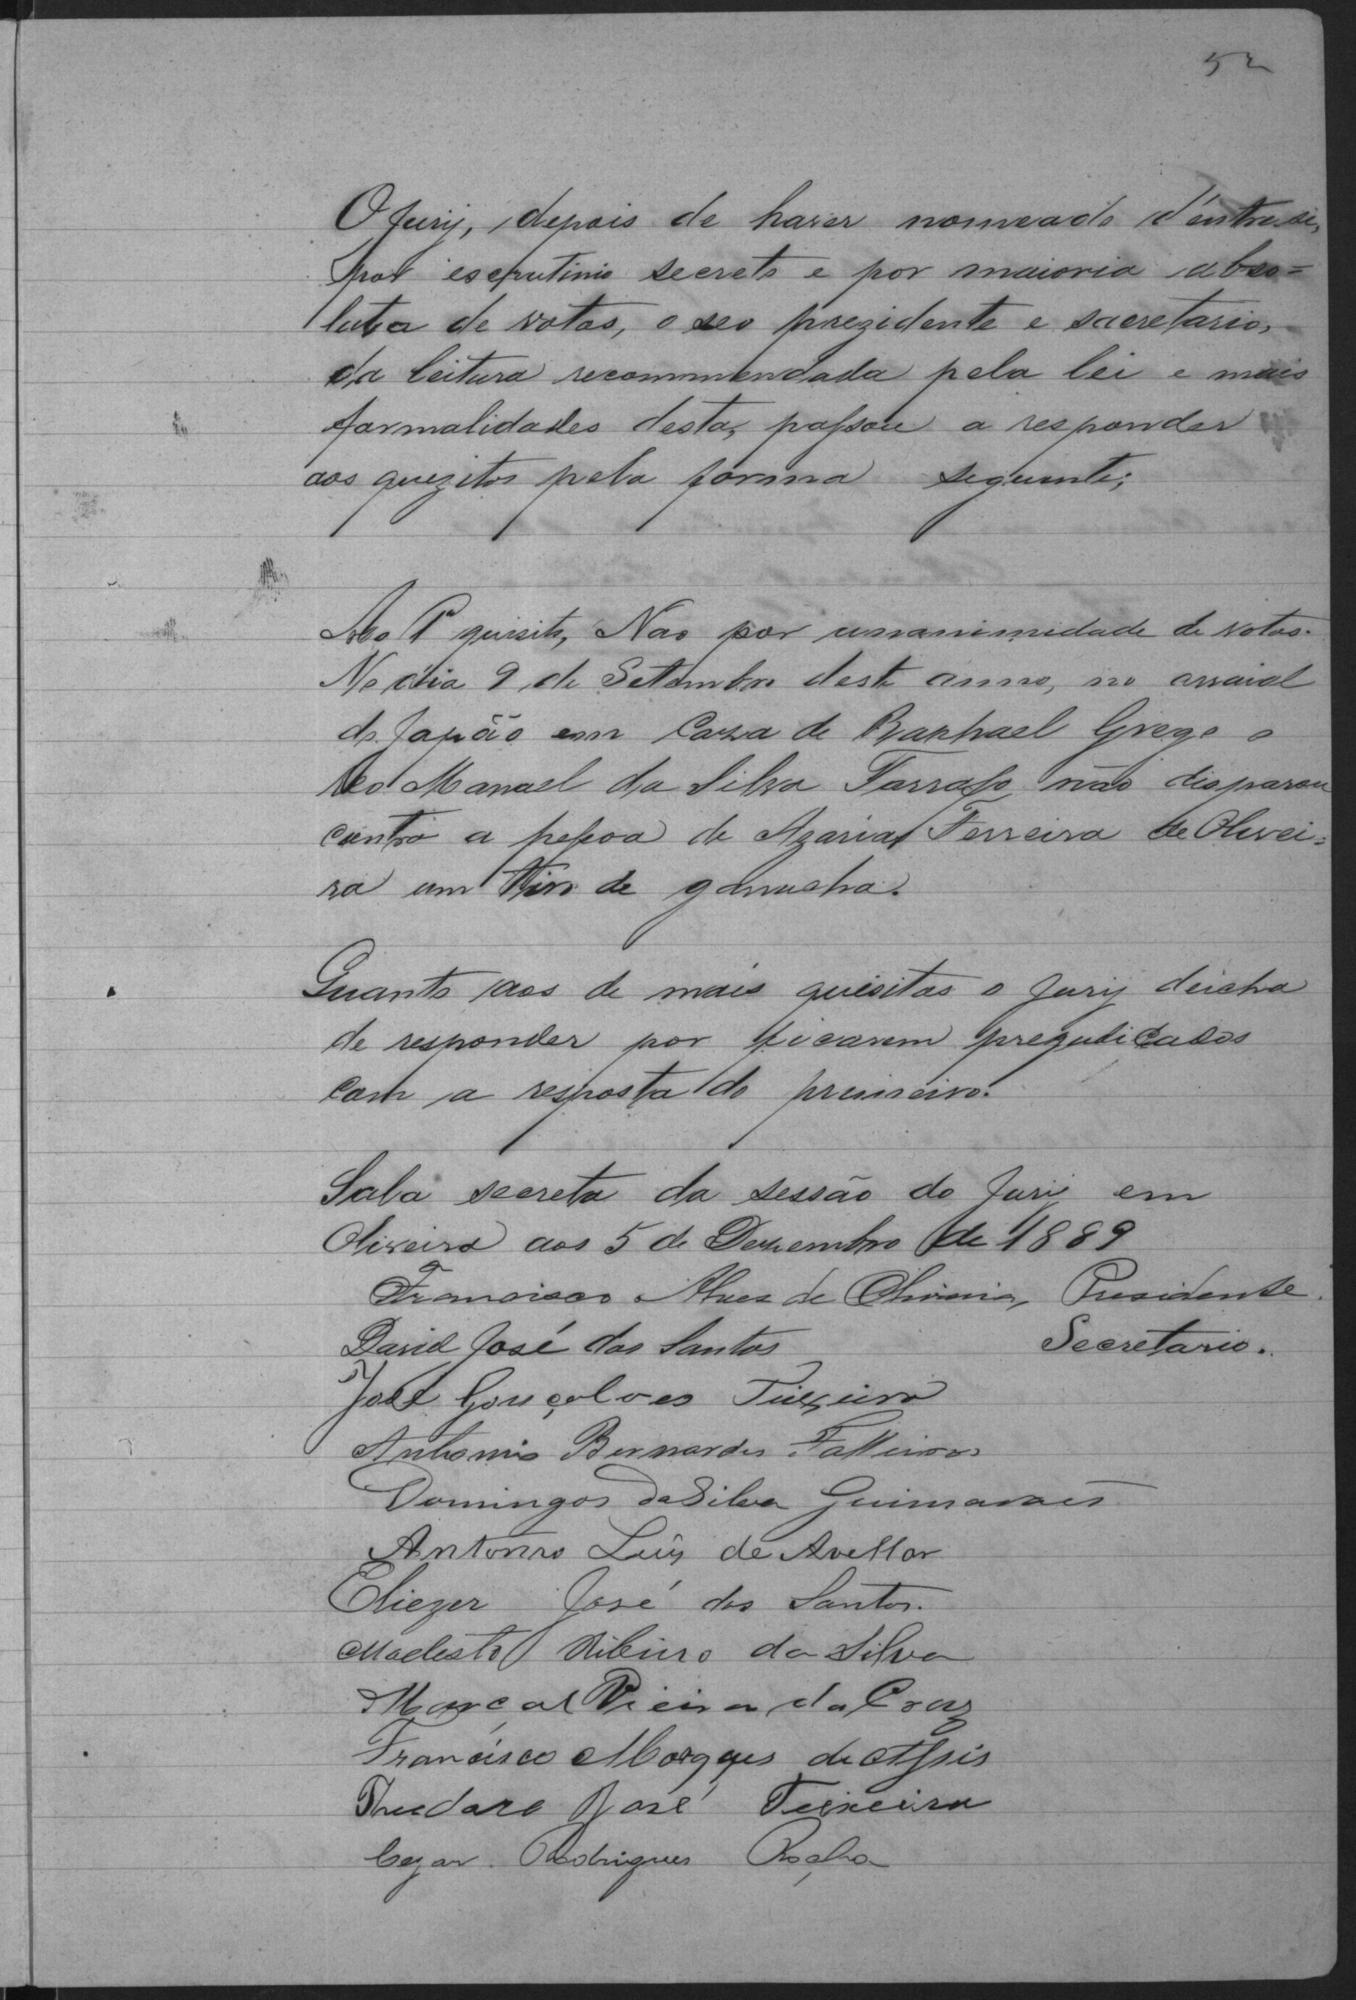 52
O Jury, depois de haver nomeado d'entre si,
por escrutinio secreto e por maioria abso=
luta de votos, o seo prezidente e sacretario,
da leitura recommendada pela lei e mais
formalidades desta, passou a responder
aos quezitos pela forma seguinte;
Ao 1º quisito, Nao por unanimidade de votos.
No dia 9 de Setembro deste anno, no arraial
do Japão em Caza de Raphael Grego o
reo Manoel da Silva Tarrafo não disparou
contra a pessoa de Azarias Ferreira de Olivei=
ra um tiro de garrucha.
Quanto aos de mais quesitos o Jury deicha
de responder por ficarem prejudicados
com a resposta do primeiro.
Sala secreta da sessão do Jury em
Oliveira aos 5 de Dezembro de 1889
Francisco Alves de Oliveira, Presidente.
David José dos Santos Secretario.
José Gonçalves Teixeira
Antonio Bernardes
Domingos da Silva Guimarães
Antonio Luis de Avellar
Eliezer José dos Santos.
Modesto Ribeiro da Silva
Marcal Vieira da Cruz
Francisco Marques de Assis
Theodoro José Teixeira
Cezar Rodrigues Rocha